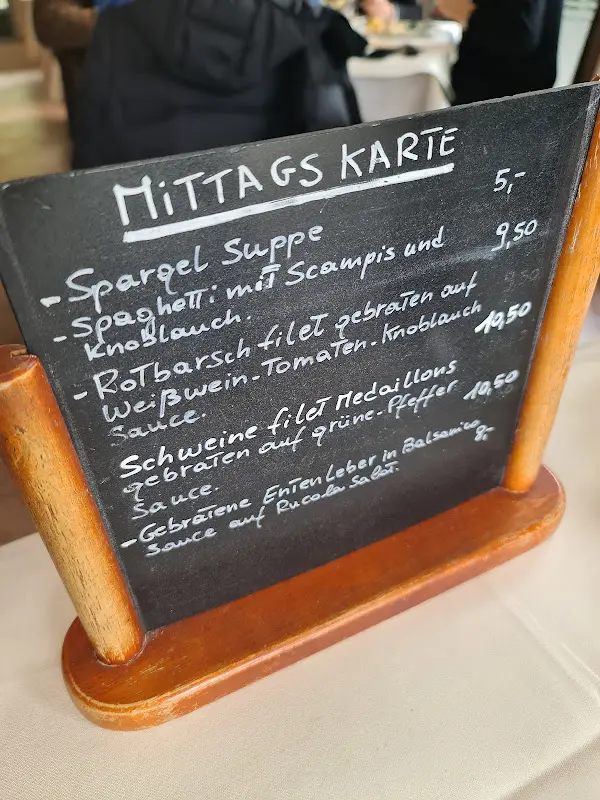 MITTAGS KARTE
- Spargel Suppe 5,-
- Spaghetti mit Scampis und 9,50
Knoblauch.
- Rotbarsch filet gebraten auf 9,50
Weißwein-Tomaten-Knoblauch 10,50
Sauce.
Schweine filet Medaillons
gebraten auf grüne-Pfeffer 10,50
Sauce.
- Gebratene Enten Leber in Balsamico 9,-
Sauce auf Rucola Salat.